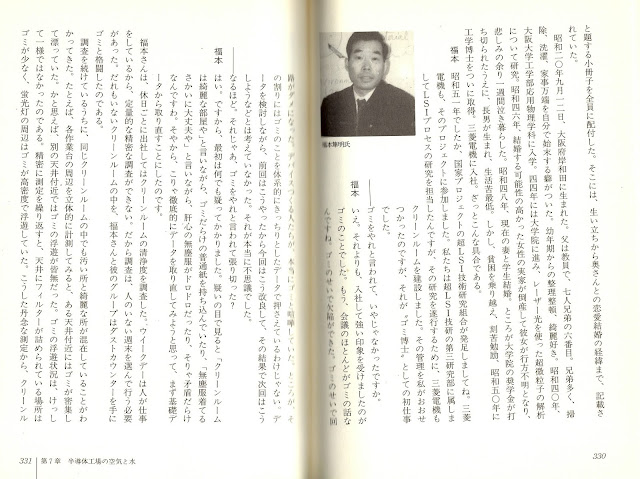 と題する小冊子を全員に配付した。そこには、生い立ちから奥さんとの恋愛結婚の経緯まで、記載されていた。
昭和二〇年九月一二日、大阪府岸和田に生まれた。父は教員で、七人兄弟の六番目。兄弟多く、掃
除、洗濯、家事万端を自分で始末する癖がついた。幼年期からの整理整頓、綺麗好き。昭和四〇年
大阪大学工学部応用物理学科に入学。四四年には大学院に進み、レーザー光を使った超微粒子の解析
について研究。昭和四六年、結婚する可能性の高かった女性の実家が倒産して彼女が行方不明となり、
悲しみの余り一週間泣き暮らした。昭和四八年、現在の妻と学生結婚。ところが大学院の奨学金が打
ち切られたうえに、長男が生まれ、生活苦最低。しかし、貧困を乗り越え、刻苦勉励。昭和五〇年に
工学博士をついに取得、三菱電機に入社。ざっとこんな具合である。
福本 昭和五一年でしたか、国家プロジェクトの超LSI技術研究組合が発足しましてね。三菱
電機も、そのプロジェクトに参加しました。私たちは超LSI技研の第三研究部に属しま
してLSIプロセスの研究を担当したんですが、その研究を遂行するために、三菱電機も
クリーンルームを建設しました。その管理を私がおおせ
つかったのですが、それが、"ゴミ博士"としての初仕事
でした。
――ゴミをやれと言われて、いやじゃなかったですか。
福本 いえ。それよりも、入社して強い印象を受けましたのが
ゴミのことでした。もう、会議のほとんどがゴミの話な
んですね。ゴミのせいで欠陥ができた。ゴミのせいで回
福本隼明氏
330
の割りにはゴミのことを体系的にきっちりとしたデータで押さえているわけじゃない。デ
ータを検討しながら、前回はこうやったから今回はこう改良して、その結果で次回はこう
しようなどとは考えていなかった。それが本当に不思議でした。
――なるほど。それじゃあ、ゴミをやれと言われて張り切った？
福本 はい。ですから、最初は何でも疑ってかかりました。疑いの目で見ると、「クリーンルーム
は綺麗な部屋や」と言いながら、ゴミだらけの普通紙を持ち込んでいたり、「無塵服着てる
さかいに大丈夫や」と言いながら、肝心の無塵服がドロドロだったり、そりゃ矛盾だらけ
なんですわ。そやから、こりゃ徹底的にデータを取り直してみようと思って、まず基礎デ
ータから取り直すことにしたのです。
福本さんは、休日ごとに出社してはクリーンルームの清浄度を調査した。ウイークデーは人が仕事
をしているから、定量的な精密な調査ができない。だから調査は、人のいない週末を選んで行う必要
があった。だれもいないクリーンルームの中を、福本さんと彼のグループはダストカウンターを手に
ゴミと格闘したのである。
調査を続けているうちに、同じクリーンルームの中でも汚い所と綺麗な所が混在していることがわ
かってきた。たとえば、各作業台の周辺を立体的に計測してみると、ある天井付近にはゴミが密集し
て漂っていた。かと思えば、別の天井付近ではゴミの浮遊が皆無だった。ゴミの浮遊状況は、けっし
て一様ではなかったのである。精密に測定を繰り返すと、天井にフィルターが詰められている場所は
ゴミが少なく、蛍光灯の周辺はゴミが高密度で浮遊していた。こうした丹念な測定から、クリーンル
331 第7章 半導体工場の空気と水